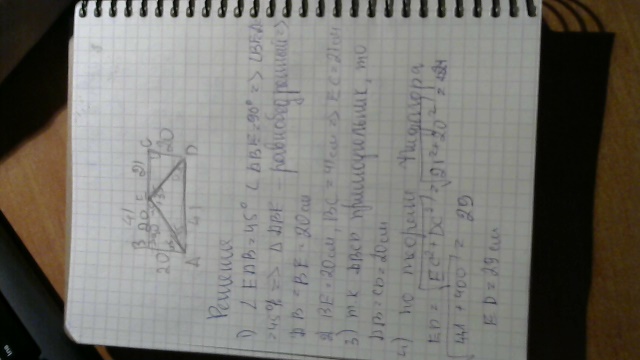 B 20 E 21 C
41
20
20
A 41 D
Решение
1) ∠EAB=45° ∠ABE=90° => ∠BEA
=45° => △ABE - равнобедренный =>
AB = BE = 20см
2) BE=20см, BC=41см => EC=21см
3) тк ABCD прямоугольник, то
AB=CD=20см
4) по теореме Пифагора
ED = √EC²+DC² = √21²+20² =
√441+400 = 29
ED=29см